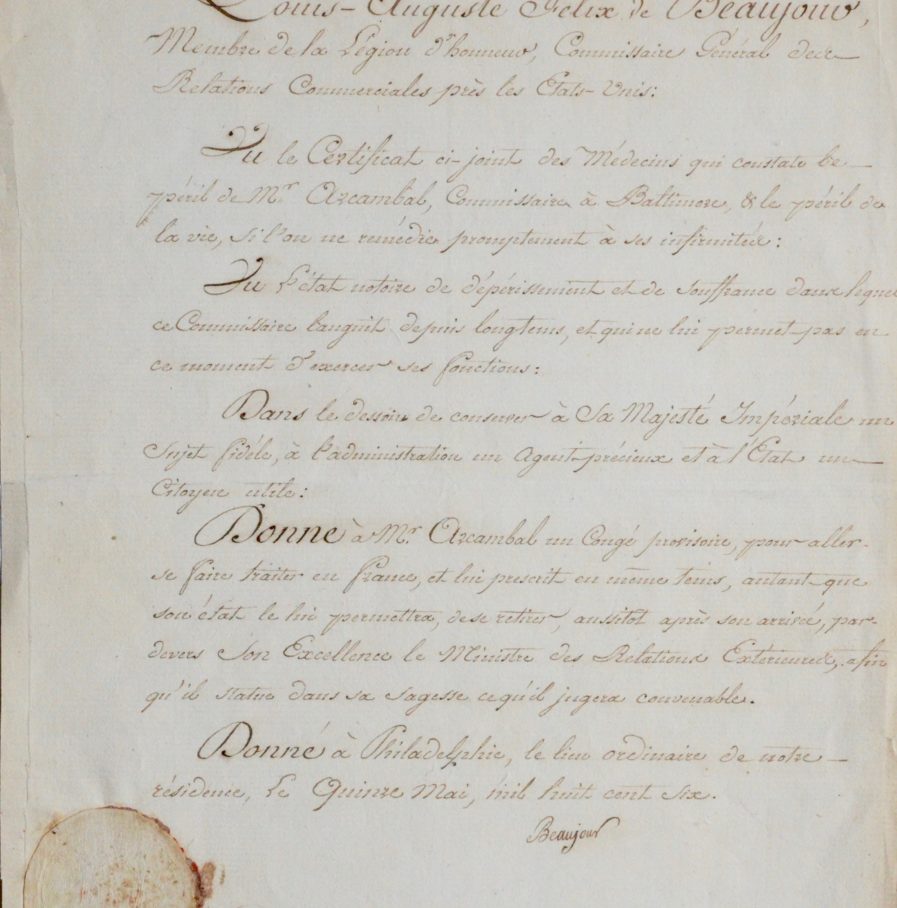 Louis-Auguste Felix de Beaujour,
Membre de la Légion d'honneur, Commissaire Général des
Relations Commerciales près les Etats-Unis:
Vu le Certificat ci-joint des Médecins qui constate le
péril de Mr. Arcambal, Commissaire à Baltimore, & le péril de
la vie, si l'on ne remédie promptement à ses infirmités:
Vu l'état notoire de dépérissement et de souffrance dans lequel
ce Commissaire languit depuis longtems, et qui ne lui permet pas en
ce moment d'exercer ses fonctions:
Dans le dessein de conserver à Sa Majesté Impériale un
Sujet fidéle, à l'administration un Agent précieux et à l'État un
Citoyen utile:
Donne à Mr. Arcambal un Congé provisoire, pour aller
se faire traiter en france, et lui prescrit en même tems, autant que
son état le lui permettra, de se retirer, aussitot après son arrivée, par
devers Son Excellence le Ministre des Relations Extérieures, afin
qu'il statue dans sa sagesse ce qu'il jugera convenable.
Donné à Philadelphie, le lieu ordinaire de notre
résidence, Le Quinze Mai, mil huit cent six.
Beaujour